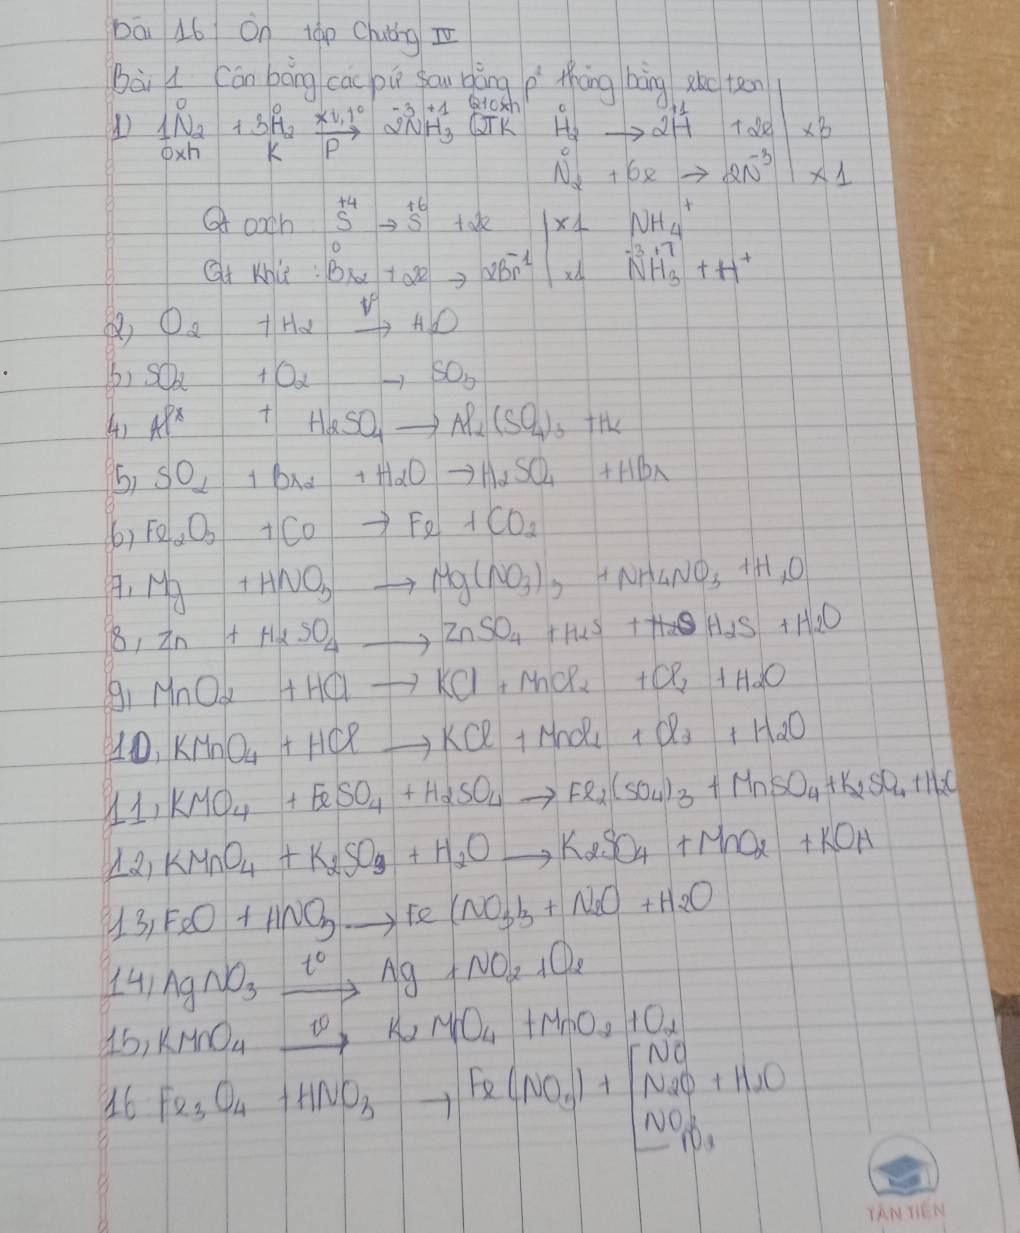 Bài 16 Ôn tập Chương IV
Bài 1 Cân bằng các pứ sau bằng p² thăng bằng electron
1) 1N₂ + 3H₂ xt, t° → 2NH₃ QTK H₂ → 2H + 2e | x3
0 0 -3 +1 QToxh 0 +1
oxh K P N₂ + 6e → 2N⁻³ | x1
Qt oxh S → S + 2e | x1 NH₄⁺
+4 +6
Qt khử : Br₂ + 2e → 2Br⁻¹ | x1 NH₃ + H⁺
2, O₂ + H₂ t° → H₂O
3) SO₂ + O₂ → SO₃
4) Al + H₂SO₄ → Al₂(SO₄)₃ + H₂
5, SO₂ + Br₂ + H₂O → H₂SO₄ + HBr
6) Fe₂O₃ + CO → Fe + CO₂
7, Mg + HNO₃ → Mg(NO₃)₃ + NH₄NO₃ + H₂O
8, Zn + H₂SO₄ → ZnSO₄ + H₂S + H₂S + H₂O
9, MnO₂ + HCl → KCl + MnCl₂ + Cl₂ + H₂O
10, KMnO₄ + HCl → KCl + MnCl₂ + Cl₂ + H₂O
11, KMO₄ + FeSO₄ + H₂SO₄ → Fe₂(SO₄)₃ + MnSO₄ + K₂SO₄ + H₂O
12, KMnO₄ + K₂SO₃ + H₂O → K₂SO₄ + MnO₂ + KOH
13, FeO + HNO₃ → Fe(NO₃)₃ + N₂O + H₂O
14, AgNO₃ t° → Ag + NO₂ + O₂
15, KMnO₄ t° → K₂MnO₄ + MnO₂ + O₂
16 Fe₃O₄ + HNO₃ → Fe(NO₃) + [NO
N₂O + H₂O
NO₂
TÂN TIẾN